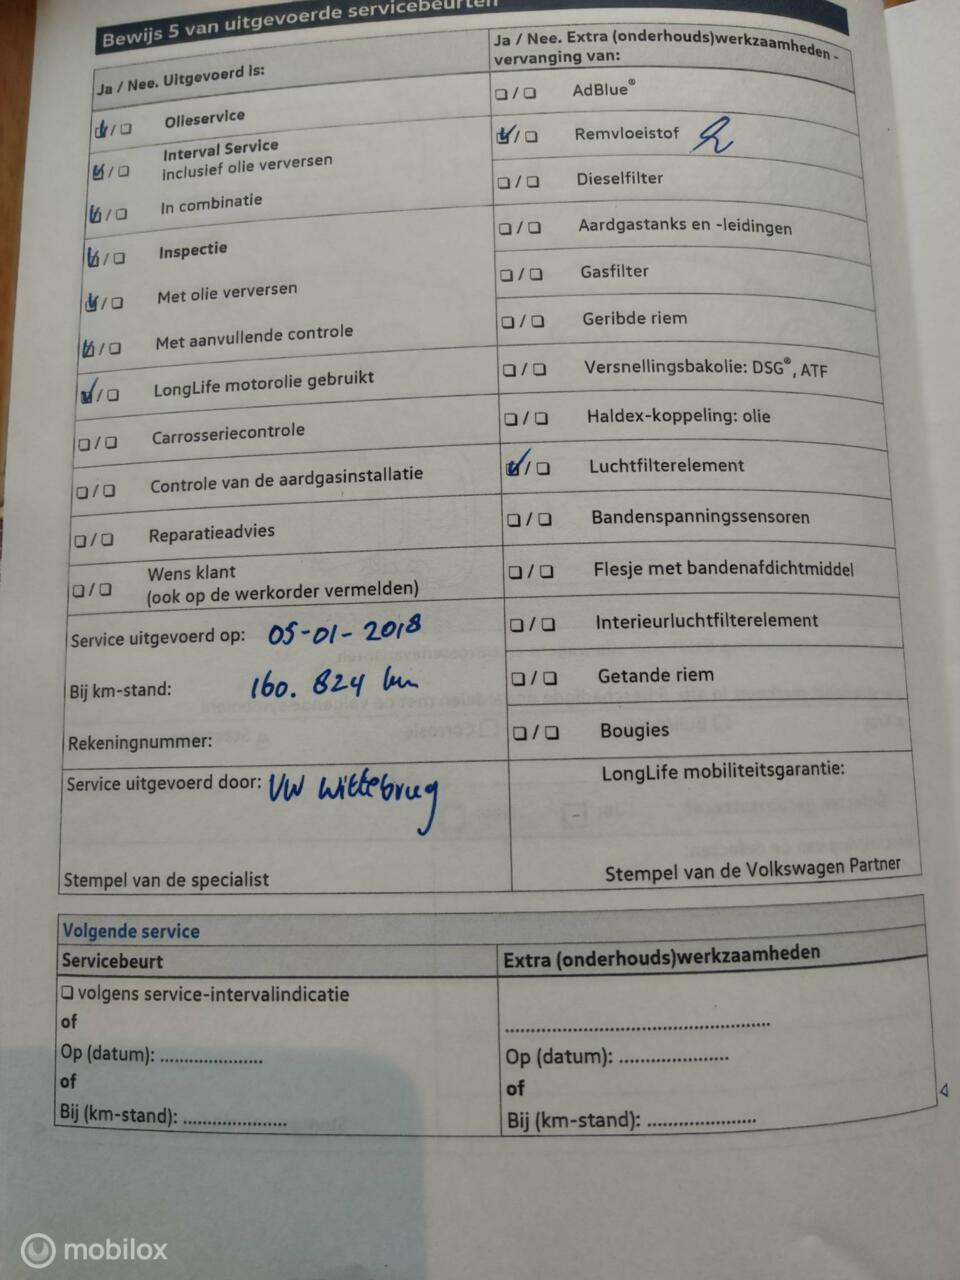 Bewijs 5 van uitgevoerde servicebeurten
Ja / Nee. Uitgevoerd is:
☑/☐ Olieservice
☑/☐ Interval Service
inclusief olie verversen
☑/☐ In combinatie
☑/☐ Inspectie
☑/☐ Met olie verversen
☑/☐ Met aanvullende controle
☑/☐ LongLife motorolie gebruikt
☐/☐ Carrosseriecontrole
☐/☐ Controle van de aardgasinstallatie
☐/☐ Reparatieadvies
☐/☐ Wens klant
(ook op de werkorder vermelden)
Service uitgevoerd op: 05-01-2018
Bij km-stand: 160.824 km
Rekeningnummer:
Service uitgevoerd door: VW Wittebrug
Stempel van de specialist
Ja / Nee. Extra (onderhouds)werkzaamheden -
vervanging van:
☐/☐ AdBlue®
☑/☐ Remvloeistof
☐/☐ Dieselfilter
☐/☐ Aardgastanks en -leidingen
☐/☐ Gasfilter
☐/☐ Geribde riem
☐/☐ Versnellingsbakolie: DSG®, ATF
☐/☐ Haldex-koppeling: olie
☑/☐ Luchtfilterelement
☐/☐ Bandenspanningssensoren
☐/☐ Flesje met bandenafdichtmiddel
☐/☐ Interieurluchtfilterelement
☐/☐ Getande riem
☐/☐ Bougies
LongLife mobiliteitsgarantie:
Stempel van de Volkswagen Partner
Volgende service
Servicebeurt
☐ volgens service-intervalindicatie
of
Op (datum): ....................
of
Bij (km-stand): ....................
Extra (onderhouds)werkzaamheden
....................................................
Op (datum): .....................
of
Bij (km-stand): .....................
mobilox